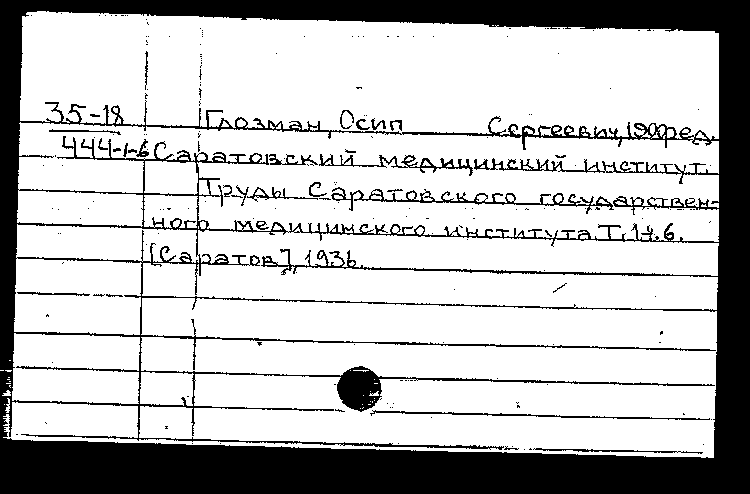 35-18 Глозман, Осип Сергеевич, 1900 ред.
444-1-6 Саратовский медицинский институт.
Труды Саратовского государствен-
ного медицинского института. Т. 1 ч. 6.
[Саратов], 1936.